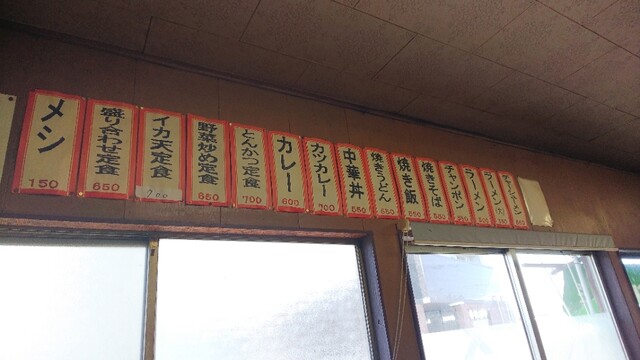 メシ
150
盛り合わせ定食
650
イカ天定食
700
野菜炒め定食
650
とんかつ定食
700
カレー
600
カツカレー
700
中華丼
650
焼きうどん
550
焼き飯
焼きそば
チャンポン
ラーメン
ラーメン(大)